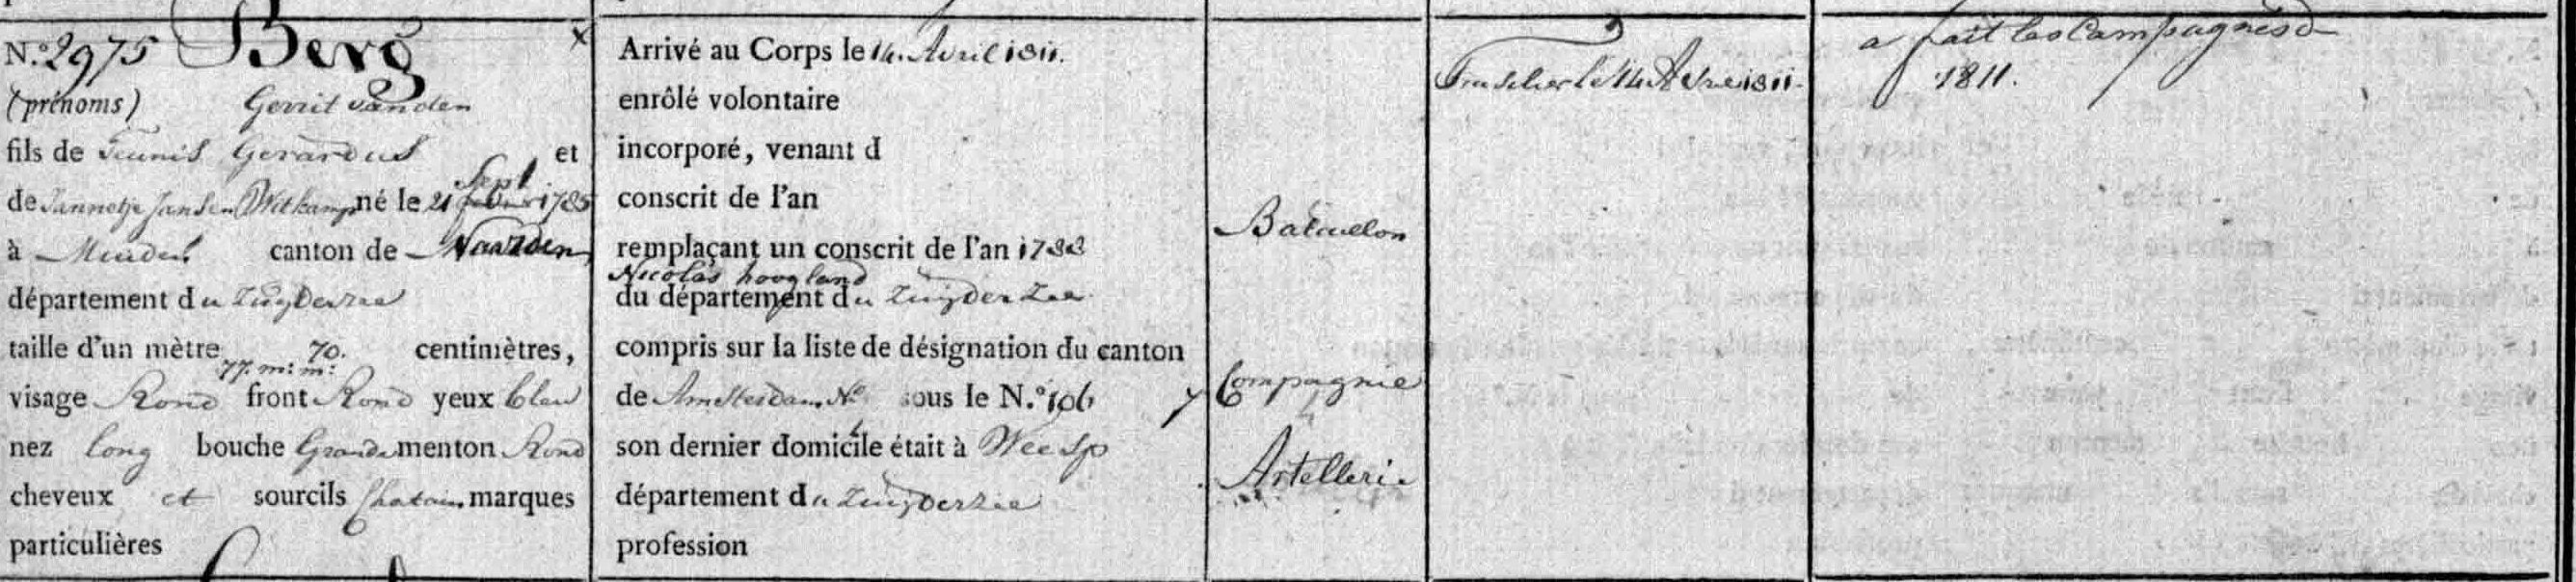 N.º 2975 Berg
(prénoms) Gerrit vanden
fils de Teunis Gerardus et
de Jannetje Jansen Witkamp né le 21 Sept 1785
à Muiden canton de Naarden
département du Zuyderzee
taille d'un mètre 70. centimètres,
77. m: m:
visage Rond front Rond yeux bleu
nez long bouche Grande menton Rond
cheveux et sourcils Chatain marques
particulières
Arrivé au Corps le 14. Avril 1811.
enrôlé volontaire
incorporé, venant d
conscrit de l'an
remplaçant un conscrit de l'an 1788
Nicolas hoogland
du département du Zuyder Zee
compris sur la liste de désignation du canton
de Amsterdam Nº sous le N.º 196
son dernier domicile était à Weesp
département du Zuyderzee
profession
Bataillon
Compagnie
Artellerie
le 14 1811.
a fait les Campagnes d
1811.